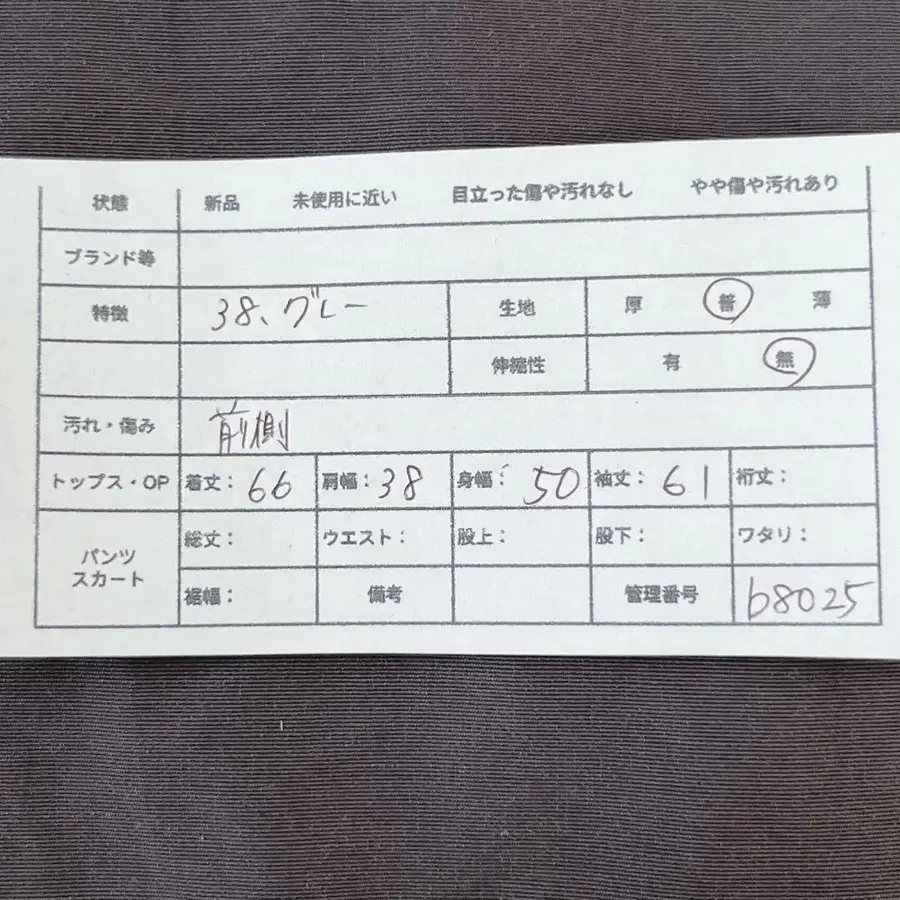 状態 新品 未使用に近い 目立った傷や汚れなし やや傷や汚れあり
ブランド等
特徴 38、グレー 生地 厚 普 薄
伸縮性 有 無
汚れ・傷み 前側
トップス・OP 着丈: 66 肩幅: 38 身幅: 50 袖丈: 61 裄丈:
パンツ スカート 総丈: ウエスト: 股上: 股下: ワタリ:
裾幅: 備考 管理番号 b8025